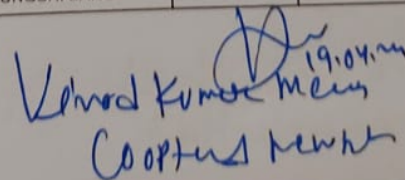 19.04.
Vinod Kumar Meena
Coopted Member